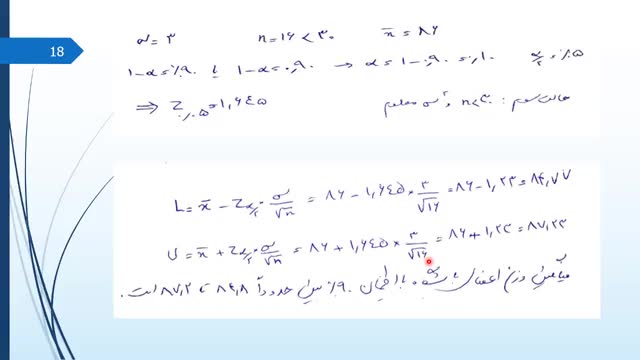 18
σ = ۳ n = ۱۶ < ۳۰ x̄ = ۸۶
۱-α = ٪۹۰ یا ۱-α = ۰,۹۰ → α = ۱-۰,۹۰ = ۰,۱۰ α/۲ = ٪۵
⇒ Z٪۵ = ۱,۶۴۵ حالت سوم : n<۳۰ و σ معلوم
L = x̄ - Zα/۲ · σ/√n = ۸۶ - ۱,۶۴۵ × ۳/√۱۶ = ۸۶ - ۱,۲۳ = ۸۴,۷۷
U = x̄ + Zα/۲ · σ/√n = ۸۶ + ۱,۶۴۵ × ۳/√۱۶ = ۸۶ + ۱,۲۳ = ۸۷,۲۳
میانگین وزن اعضای باشگاه با اطمینان ٪۹۰ بین حدوداً ۸۴,۸ تا ۸۷,۲ است.